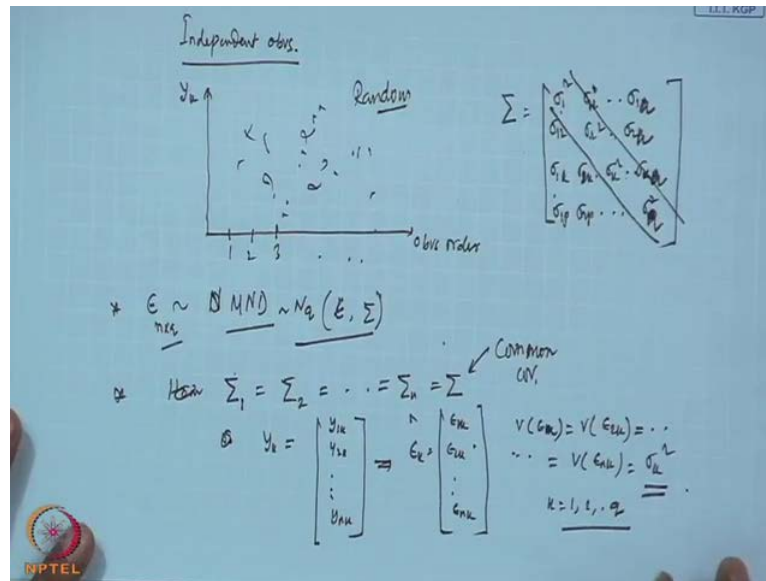 I.I.T. KGP
Independent obvs.
y_ik
Random
1 2 3 . . .
Obvs order
Σ =
σ_1^2 . . σ_1q
σ_12 σ_k^2 . . σ_2q
σ_1k σ_2k . σ_k^2 . σ_kq
σ_1p σ_2p . . . σ_q^2
* ε ~ MND ~ Nq (ε, Σ)
n×q
* Σ_1 = Σ_2 = . . = Σ_n = Σ
Common
cov.
y_k = [ y_1k y_2k : y_nk ] = ε_k = [ ε_1k ε_2k : ε_nk ]
V(ε_1k) = V(ε_2k) = . .
. . = V(ε_nk) = σ_k^2
k = 1, 2, . q
NPTEL